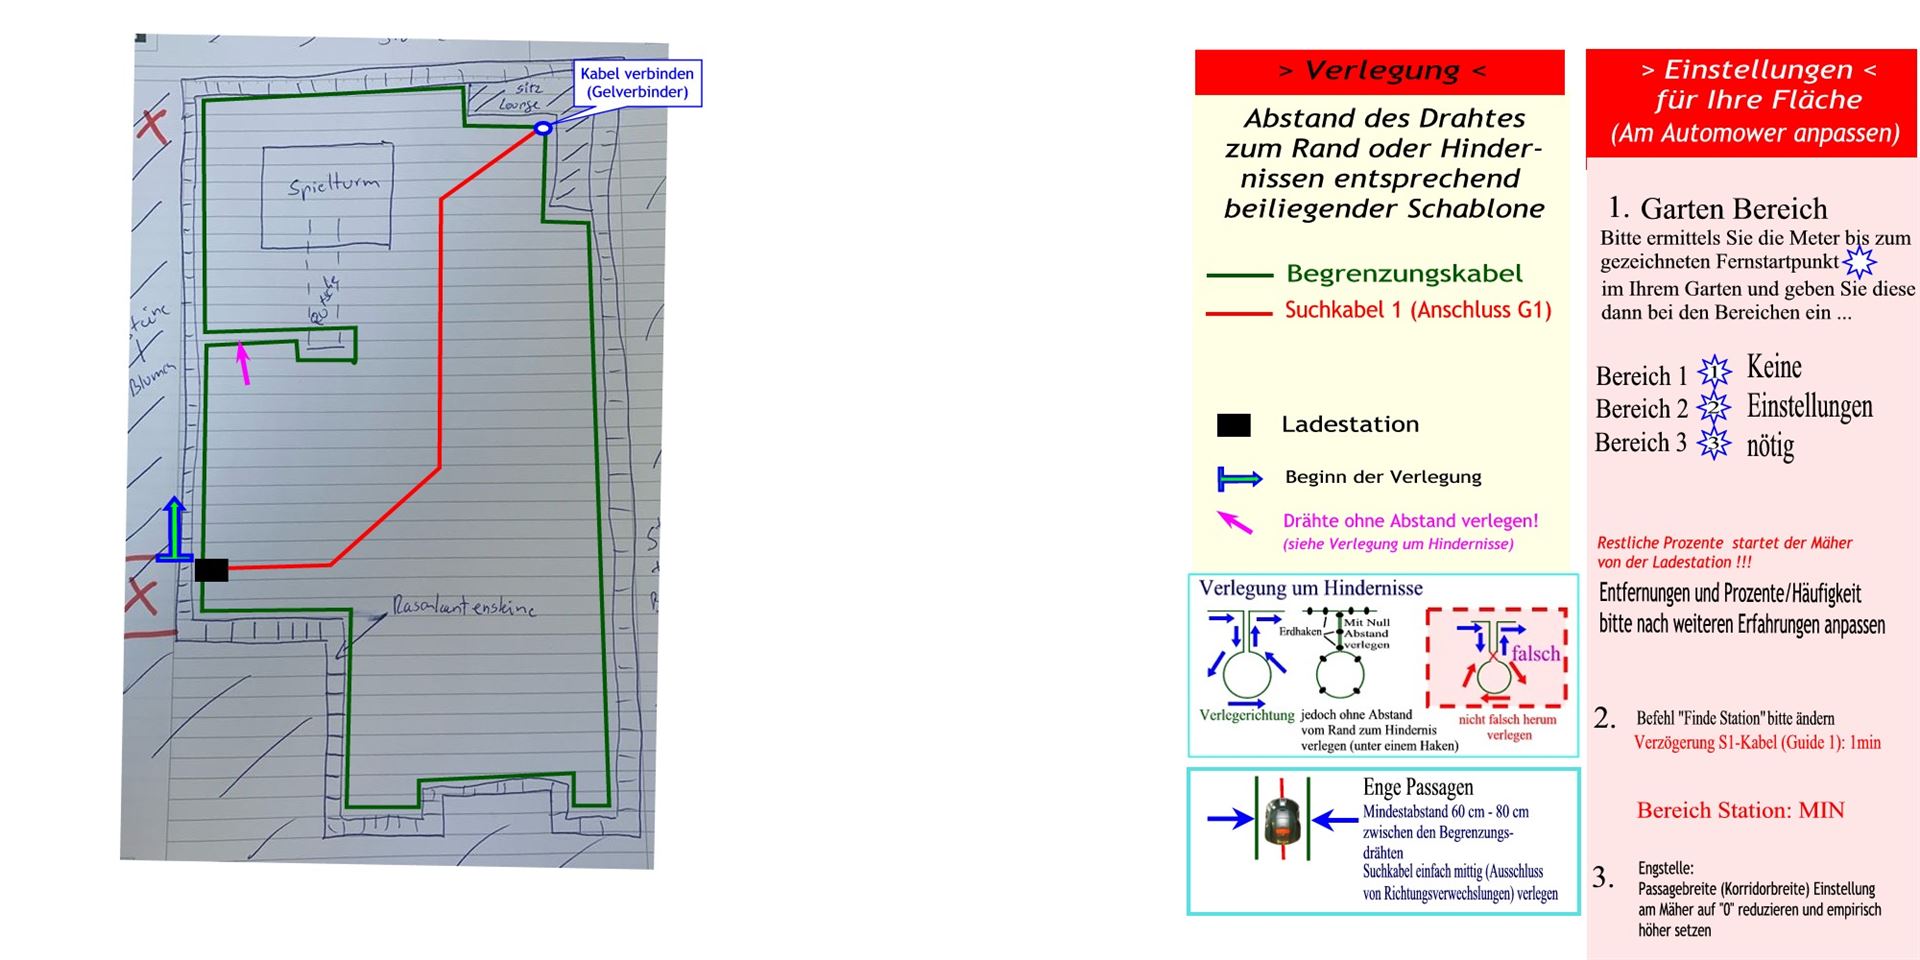 Kabel verbinden
(Gelverbinder)
sitz
Lounge
Spielturm
Blumen
Rasenkantensteine
> Verlegung <
Abstand des Drahtes
zum Rand oder Hinder-
nissen entsprechend
beiliegender Schablone
Begrenzungskabel
Suchkabel 1 (Anschluss G1)
Ladestation
Beginn der Verlegung
Drähte ohne Abstand verlegen!
(siehe Verlegung um Hindernisse)
Verlegung um Hindernisse
Erdhaken
Mit Null
Abstand
verlegen
falsch
Verlegerichtung
jedoch ohne Abstand
vom Rand zum Hindernis
verlegen (unter einem Haken)
nicht falsch herum
verlegen
Enge Passagen
Mindestabstand 60 cm - 80 cm
zwischen den Begrenzungs-
drähten
Suchkabel einfach mittig (Ausschluss
von Richtungsverwechslungen) verlegen
> Einstellungen <
für Ihre Fläche
(Am Automower anpassen)
1. Garten Bereich
Bitte ermittels Sie die Meter bis zum
gezeichneten Fernstartpunkt
im Ihrem Garten und geben Sie diese
dann bei den Bereichen ein ...
Bereich 1 1 Keine
Bereich 2 2 Einstellungen
Bereich 3 3 nötig
Restliche Prozente startet der Mäher
von der Ladestation !!!
Entfernungen und Prozente/Häufigkeit
bitte nach weiteren Erfahrungen anpassen
2. Befehl "Finde Station" bitte ändern
Verzögerung S1-Kabel (Guide 1): 1min
Bereich Station: MIN
3. Engstelle:
Passagebreite (Korridorbreite) Einstellung
am Mäher auf "0" reduzieren und empirisch
höher setzen